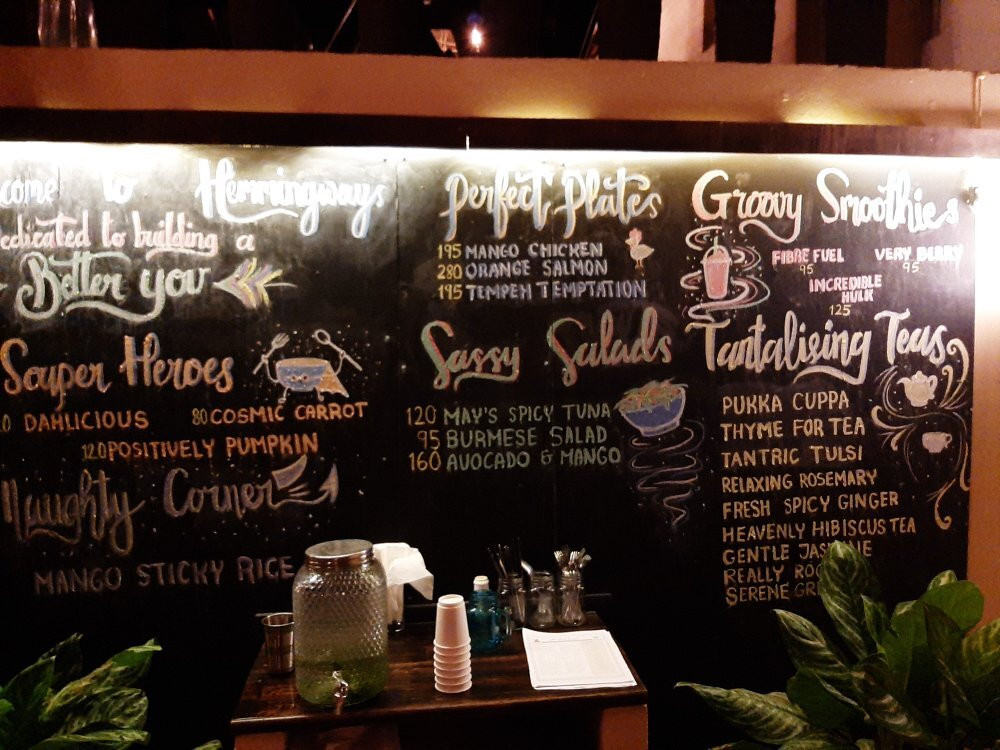 to Hemmingways
dedicated to building a
Better you
Souper Heroes
DAHLICIOUS 80 COSMIC CARROT
120 POSITIVELY PUMPKIN
Naughty Corner
MANGO STICKY RICE
Perfect Plates
195 MANGO CHICKEN
280 ORANGE SALMON
195 TEMPEH TEMPTATION
Sassy Salads
120 MAY'S SPICY TUNA
95 BURMESE SALAD
160 AVOCADO & MANGO
Groovy Smoothies
FIBRE FUEL VERY BERRY
95 95
INCREDIBLE
HULK
125
Tantalising Teas
PUKKA CUPPA
THYME FOR TEA
TANTRIC TULSI
RELAXING ROSEMARY
FRESH SPICY GINGER
HEAVENLY HIBISCUS TEA
GENTLE JASMINE
REALLY
SERENE